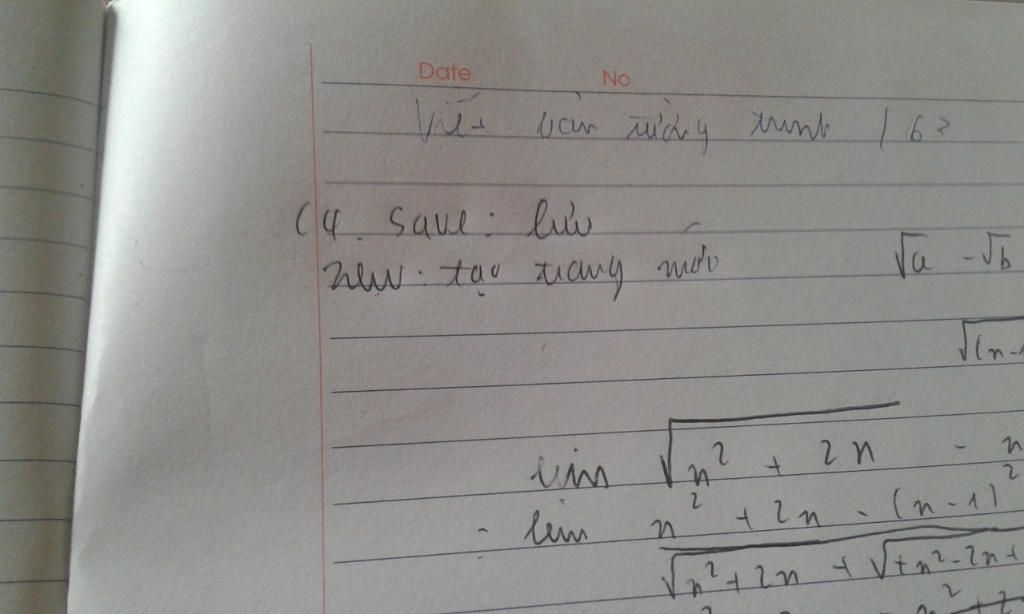 Date No
Viết bản tường trình 163
C4. Save: lưu
new: tạo trang mới
√a - √b
√(n-1
lim √n² + 2n - n
= lim n² + 2n - (n-1)²
√n²+2n + √+n²-2n+
n²+2